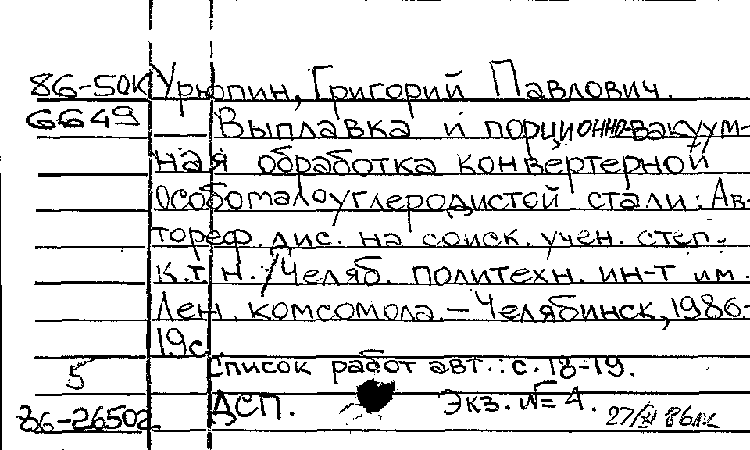 86-50К Урюпин, Григорий Павлович.
6649 Выплавка и порционно-вакуум-
ная обработка конвертерной
особомалоуглеродистой стали: Ав-
тореф. дис. на соиск. учен. степ.
к.т.н. / Челяб. политехн. ин-т им.
Лен. комсомола. – Челябинск, 1986-
19с
5 Список работ авт.: с. 18-19.
86-26502 ДСП. Экз. №= 4.